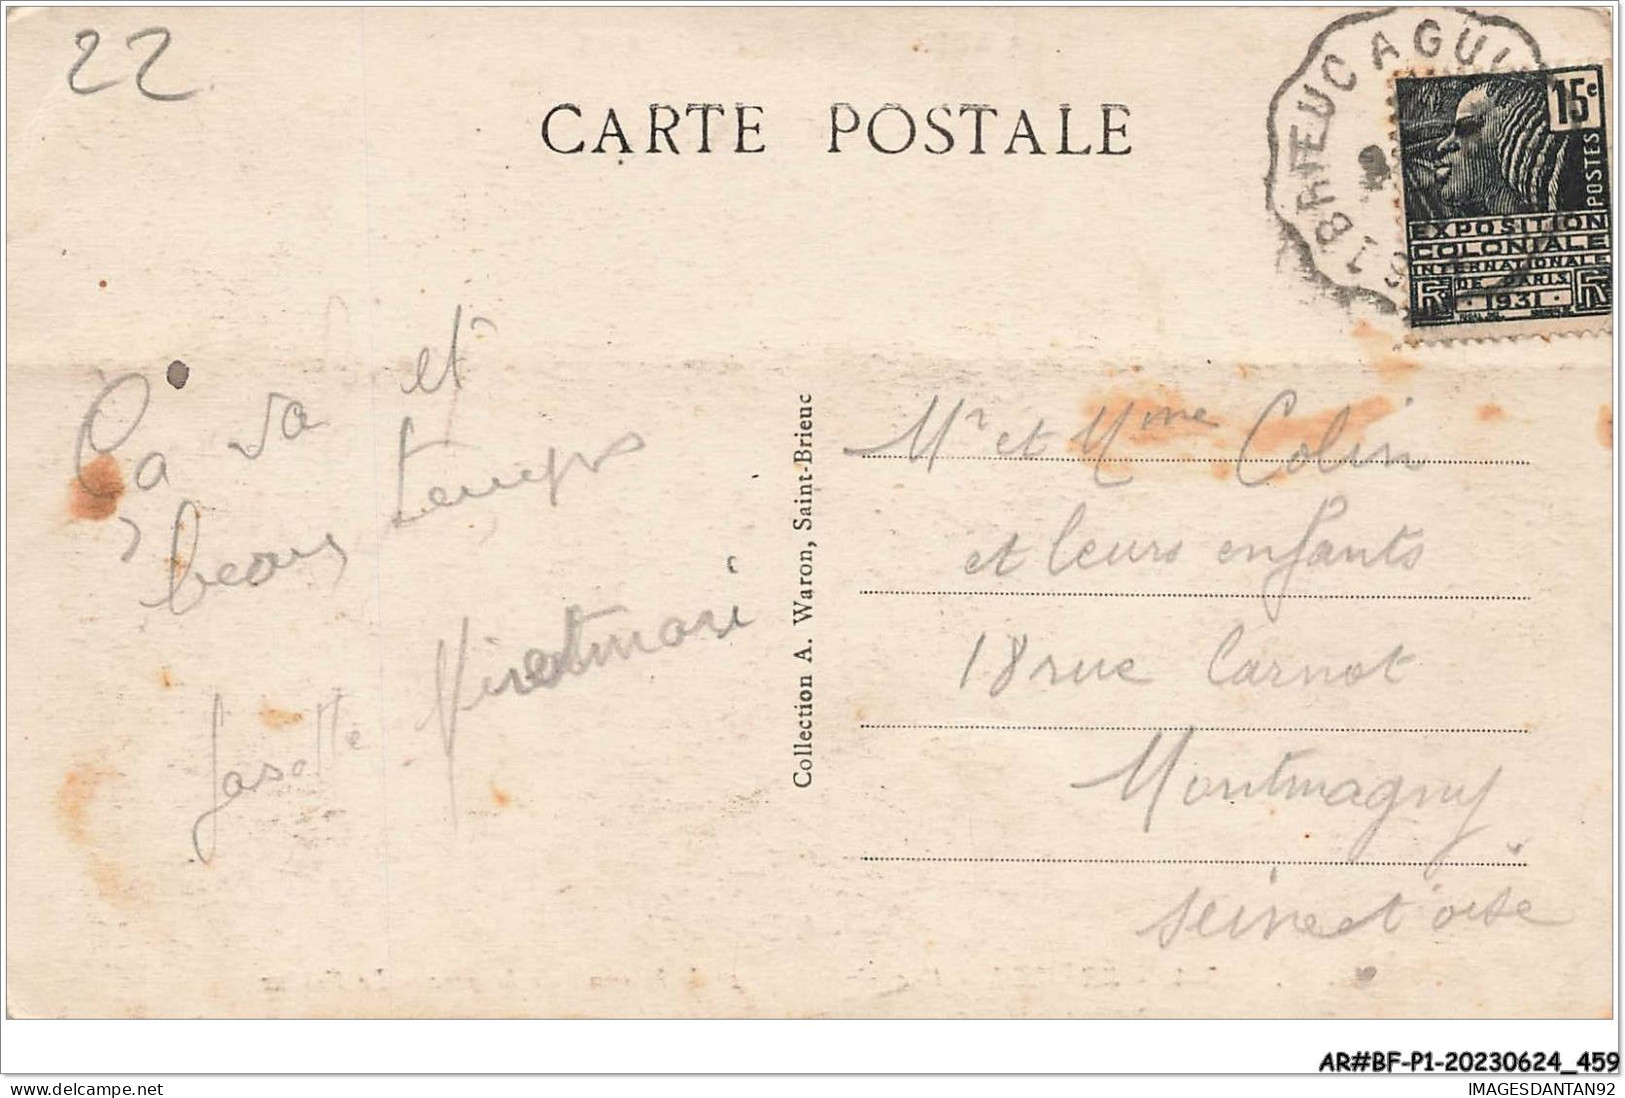 22
CARTE POSTALE
BRIEUC A GUI
15c
POSTES
EXPOSITION
COLONIALE
INTERNATIONALE
DE PARIS
1931
Ça va et
beau temps
Collection A. Waron, Saint-Brieuc
Mr et Mme Colin
et leurs enfants
18 rue Carnot
Montmagny
seine et oise
AR#BF-P1-20230624_459
IMAGESDANTAN92